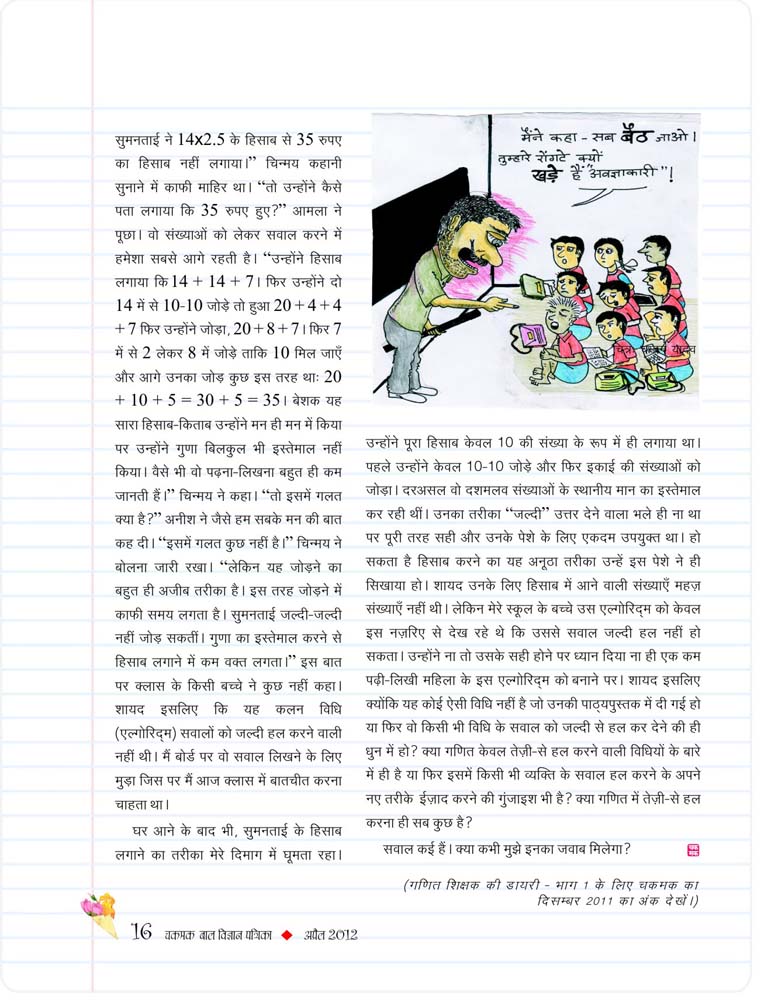 सुमनताई ने 14x2.5 के हिसाब से 35 रुपए
का हिसाब नहीं लगाया।” चिन्मय कहानी
सुनाने में काफी माहिर था। “तो उन्होंने कैसे
पता लगाया कि 35 रुपए हुए?” आमला ने
पूछा। वो संख्याओं को लेकर सवाल करने में
हमेशा सबसे आगे रहती है। “उन्होंने हिसाब
लगाया कि 14 + 14 + 7। फिर उन्होंने दो
14 में से 10-10 जोड़े तो हुआ 20 + 4 + 4
+ 7 फिर उन्होंने जोड़ा, 20 + 8 + 7। फिर 7
में से 2 लेकर 8 में जोड़े ताकि 10 मिल जाएँ
और आगे उनका जोड़ कुछ इस तरह थाः 20
+ 10 + 5 = 30 + 5 = 35। बेशक यह
सारा हिसाब-किताब उन्होंने मन ही मन में किया
पर उन्होंने गुणा बिलकुल भी इस्तेमाल नहीं
किया। वैसे भी वो पढ़ना-लिखना बहुत ही कम
जानती हैं।” चिन्मय ने कहा। “तो इसमें गलत
क्या है?” अनीश ने जैसे हम सबके मन की बात
कह दी। “इसमें गलत कुछ नहीं है।” चिन्मय ने
बोलना जारी रखा। “लेकिन यह जोड़ने का
बहुत ही अजीब तरीका है। इस तरह जोड़ने में
काफी समय लगता है। सुमनताई जल्दी-जल्दी
नहीं जोड़ सकतीं। गुणा का इस्तेमाल करने से
हिसाब लगाने में कम वक्त लगता।” इस बात
पर क्लास के किसी बच्चे ने कुछ नहीं कहा।
शायद इसलिए कि यह कलन विधि
(एल्गोरिद्म) सवालों को जल्दी हल करने वाली
नहीं थी। मैं बोर्ड पर वो सवाल लिखने के लिए
मुड़ा जिस पर मैं आज क्लास में बातचीत करना
चाहता था।
घर आने के बाद भी, सुमनताई के हिसाब
लगाने का तरीका मेरे दिमाग में घूमता रहा।
मैंने कहा - सब बैठ जाओ।
तुम्हारे रोंगटे क्यों
खड़े हैं “अवज्ञाकारी”!
उन्होंने पूरा हिसाब केवल 10 की संख्या के रूप में ही लगाया था।
पहले उन्होंने केवल 10-10 जोड़े और फिर इकाई की संख्याओं को
जोड़ा। दरअसल वो दशमलव संख्याओं के स्थानीय मान का इस्तेमाल
कर रही थीं। उनका तरीका “जल्दी” उत्तर देने वाला भले ही ना था
पर पूरी तरह सही और उनके पेशे के लिए एकदम उपयुक्त था। हो
सकता है हिसाब करने का यह अनूठा तरीका उन्हें इस पेशे ने ही
सिखाया हो। शायद उनके लिए हिसाब में आने वाली संख्याएँ महज़
संख्याएँ नहीं थी। लेकिन मेरे स्कूल के बच्चे उस एल्गोरिद्म को केवल
इस नज़रिए से देख रहे थे कि उससे सवाल जल्दी हल नहीं हो
सकता। उन्होंने ना तो उसके सही होने पर ध्यान दिया ना ही एक कम
पढ़ी-लिखी महिला के इस एल्गोरिद्म को बनाने पर। शायद इसलिए
क्योंकि यह कोई ऐसी विधि नहीं है जो उनकी पाठ्यपुस्तक में दी गई हो
या फिर वो किसी भी विधि के सवाल को जल्दी से हल कर देने की ही
धुन में हो? क्या गणित केवल तेज़ी-से हल करने वाली विधियों के बारे
में ही है या फिर इसमें किसी भी व्यक्ति के सवाल हल करने के अपने
नए तरीके ईज़ाद करने की गुंजाइश भी है? क्या गणित में तेज़ी-से हल
करना ही सब कुछ है?
सवाल कई हैं। क्या कभी मुझे इनका जवाब मिलेगा?
(गणित शिक्षक की डायरी - भाग 1 के लिए चकमक का
दिसम्बर 2011 का अंक देखें।)
16 चकमक बाल विज्ञान पत्रिका ◆ अप्रैल 2012